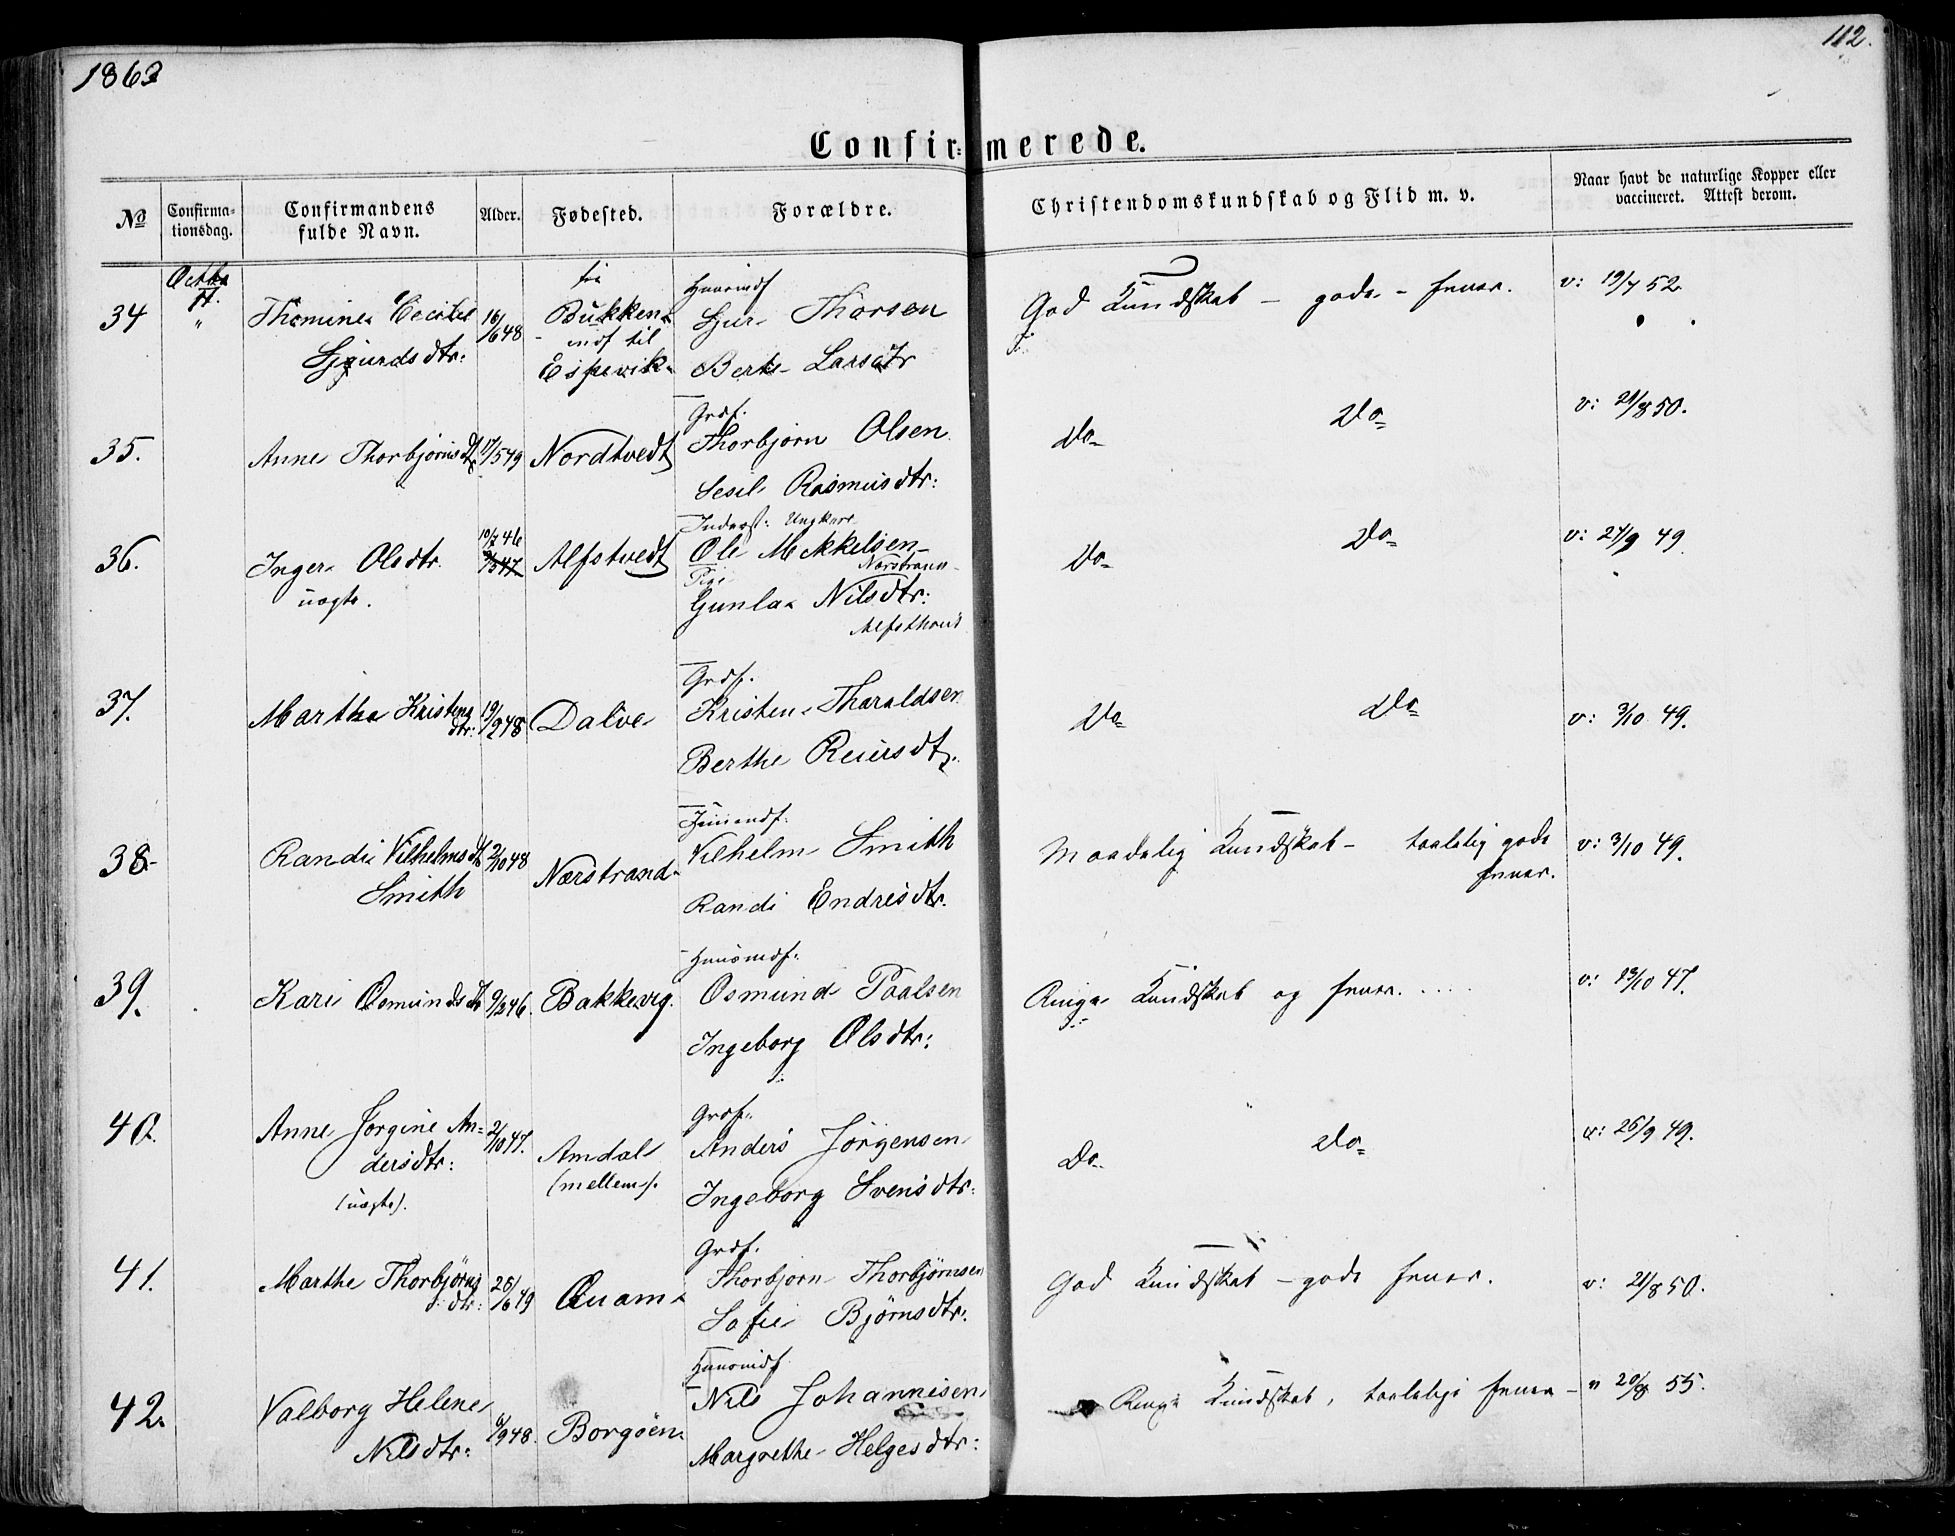 1863
112.
Confirmerede.
No
Confirmationsdag.
Confirmandens fulde Navn.
Alder.
Fødested.
Forældre.
Christendomskundskab og Flid m. v.
Naar havt de naturlige Kopper eller vaccineret. Attest derom.
Octbr
34 " Thomine Cecilie 16/6 48 fra Bukken indf til Espevik Huusmdf Sjur Thorsen God Kundskab – gode – Evner. v: 19/7 52
Sjgurdsdtr: Berte Larsdtr
35. Anne Thorbjørnsdtr 17/5 49 Nordtvedt Grdf. Thorbjørn Olsen Do Do v: 21/8 50.
Sesil Rasmusdtr:
36. Inger Olsdtr. 10/7 46 Alfstvedt Inderst: Ungkarl Ole Mikkelsen Nærstrand Do Do v: 24/9 49
uægte. Pige Gunla Nilsdtr:
37. Martha Kristensdtr: 19/2 48 Dalve Grdf. Kristen Tharaldsen Do Do v: 3/10 49.
Berthe Reiersdtr.
38. Randi Vilhelmsdtr 2/10 48 Nærstrand Vilhelm Smith Maadelig Kundskab – taalelig gode v: 3/10 49.
Smith Randi Endresdtr. Evner.
39. Kari Osmundsdtr 9/2 46. Bakkevig. Huusmdf. Osmund Paalsen Ringe Kundskab og Evner. v: 23/10 47.
Ingeborg Olsdtr:
40. Anne Jørgine An= 2/10 47. Amdal Grdf. Anders Jørgensen Do Do v: 26/9 49.
dersdtr: (mellem). Ingeborg Svensdtr:
(uægte).
41. Marthe Thorbjørnsdtr: 25/6 49 Quam Grdf. Thorbjørn Thorbjørnsen God Kundskab – gode Evner. v: 21/8 50.
Sofie Bjørnsdtr:
42. Valborg Helene 6/9 48. Borgøen Huusmdf Nils Johannisen Ringe Kundskab, taalelige Evner – v 20/8 55.
Nilsdtr: Margrethe Helgesdtr: